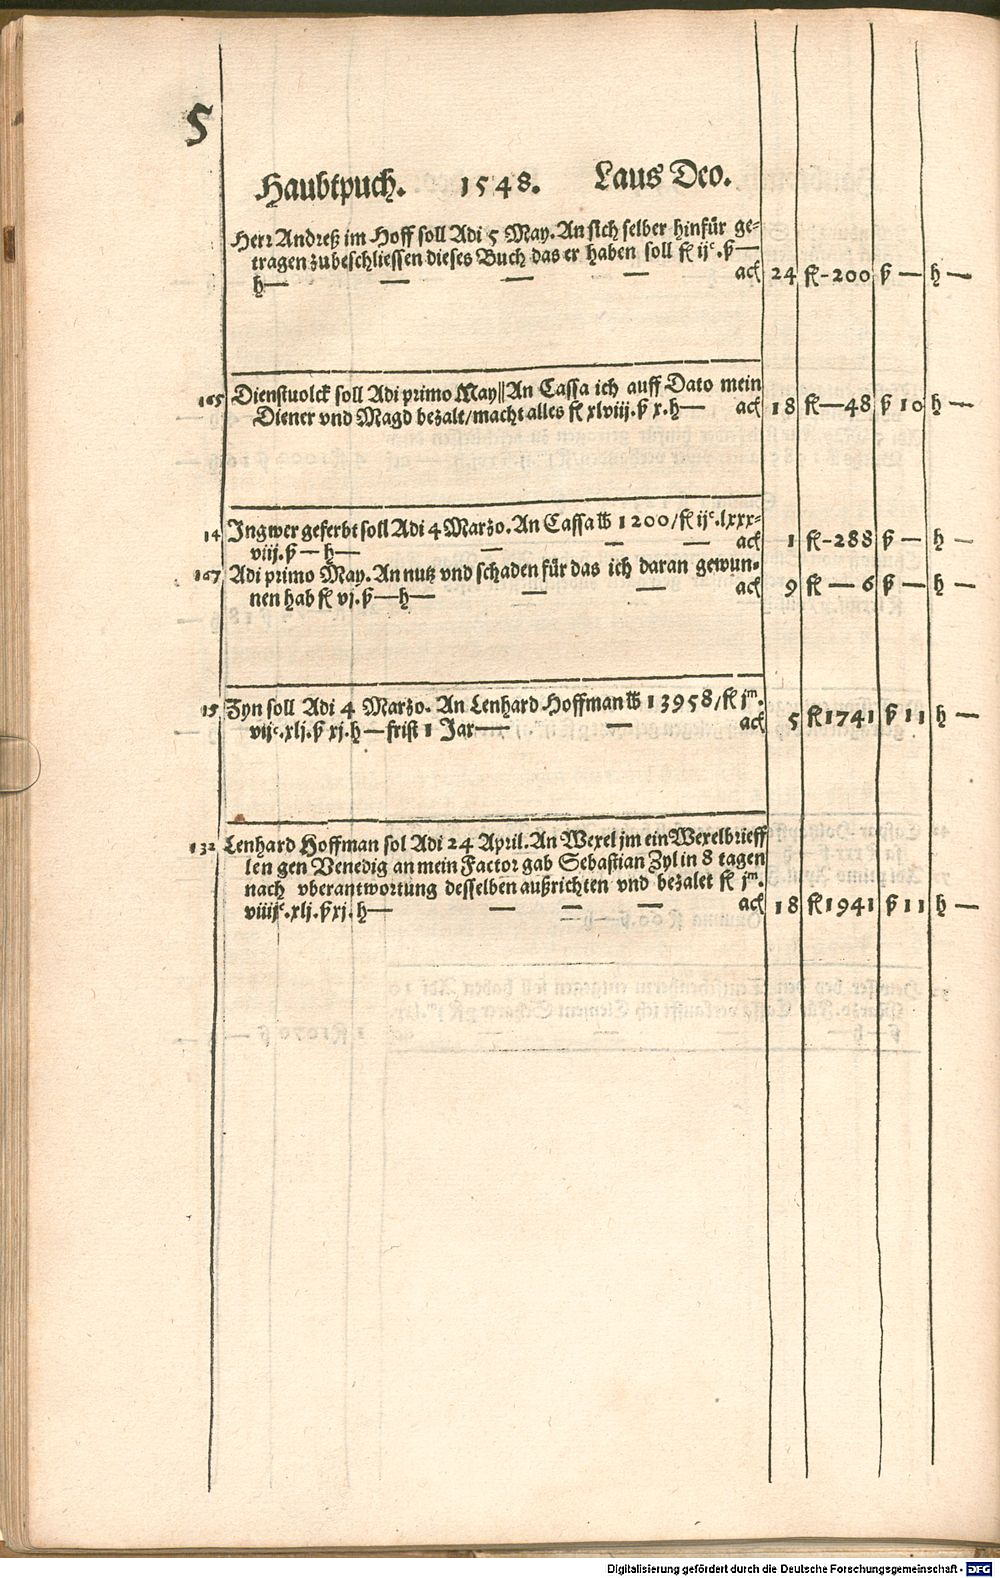 5
Haubtpuch. 1548. Laus Deo.
Herr Andreß im Hoff soll Adi 5 May. An sich selber hinfür ge-
tragen zubeschliessen dieses Buch das er haben soll fl ijᶜ.ß—
h— — — — acł 24 fl-200 ß — h —
165 Dienstuolck soll Adi primo May||An Cassa ich auff Dato mein
Diener vnd Magd bezalt/macht alles fl xlviij.ß x.h— acł 18 fl—48 ß 10 h —
14 Ingwer geferbt soll Adi 4 Marzo. An Cassa ℔ 1200/fl ijᶜ.lxxx-
viij.ß—h— — — — acł 1 fl-288 ß — h —
167 Adi primo May. An nutz vnd schaden für das ich daran gewun-
nen hab fl vj.ß—h— — — acł 9 fl — 6 ß — h —
15 Zyn soll Adi 4 Marzo. An Lenhard Hoffman ℔ 13958/fl jᵐ.
vijᶜ.xlj.ß xj.h—frist 1 Jar— — acł 5 fl 1741 ß 11 h —
132 Lenhard Hoffman sol Adi 24 April. An Wexel jm ein Wexelbrieff
len gen Venedig an mein Factor gab Sebastian Zyl in 8 tagen
nach vberantwortung desselben außrichten vnd bezalet fl jᵐ.
viiijᶜ.xlj.ß xj.h— — — — acł 18 fl 1941 ß 11 h —
Digitalisierung gefördert durch die Deutsche Forschungsgemeinschaft - DFG